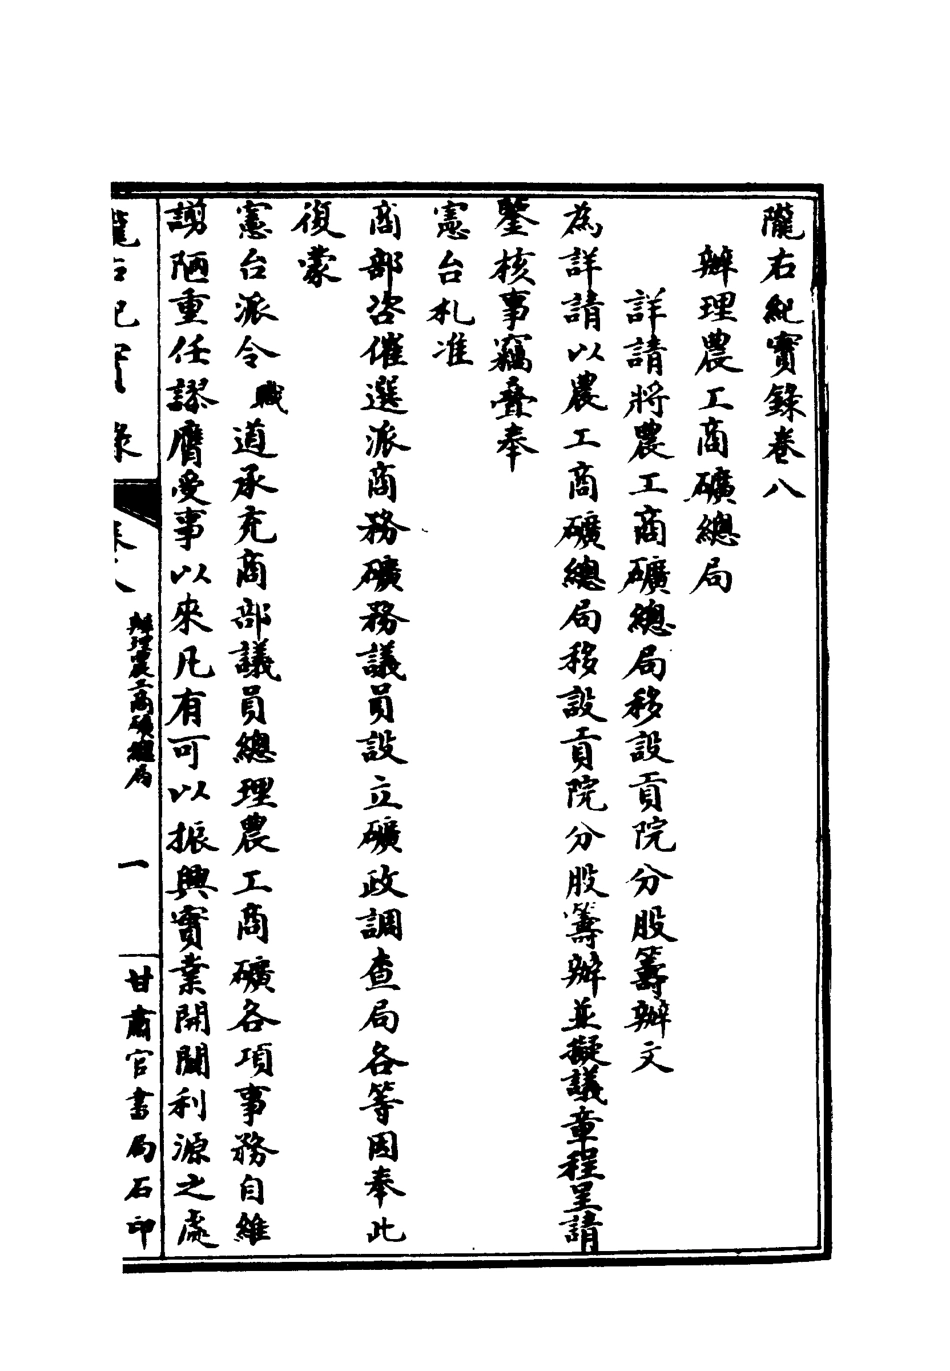 隴右紀實錄卷八
辦理農工商礦總局
詳請將農工商礦總局移設貢院分股籌辦文
為詳請以農工商礦總局移設貢院分股籌辦並擬議章程呈請
鑒核事竊叠奉
憲台札准
商部咨催選派商務礦務議員設立礦政調查局各等因奉此
復蒙
憲台派令職道承充商部議員總理農工商礦各項事務自維
謭陋重任謬膺受事以來凡有可以振興實業開闢利源之處
隴右紀實錄 卷八 辦理農工商礦總局 一 甘肅官書局石印